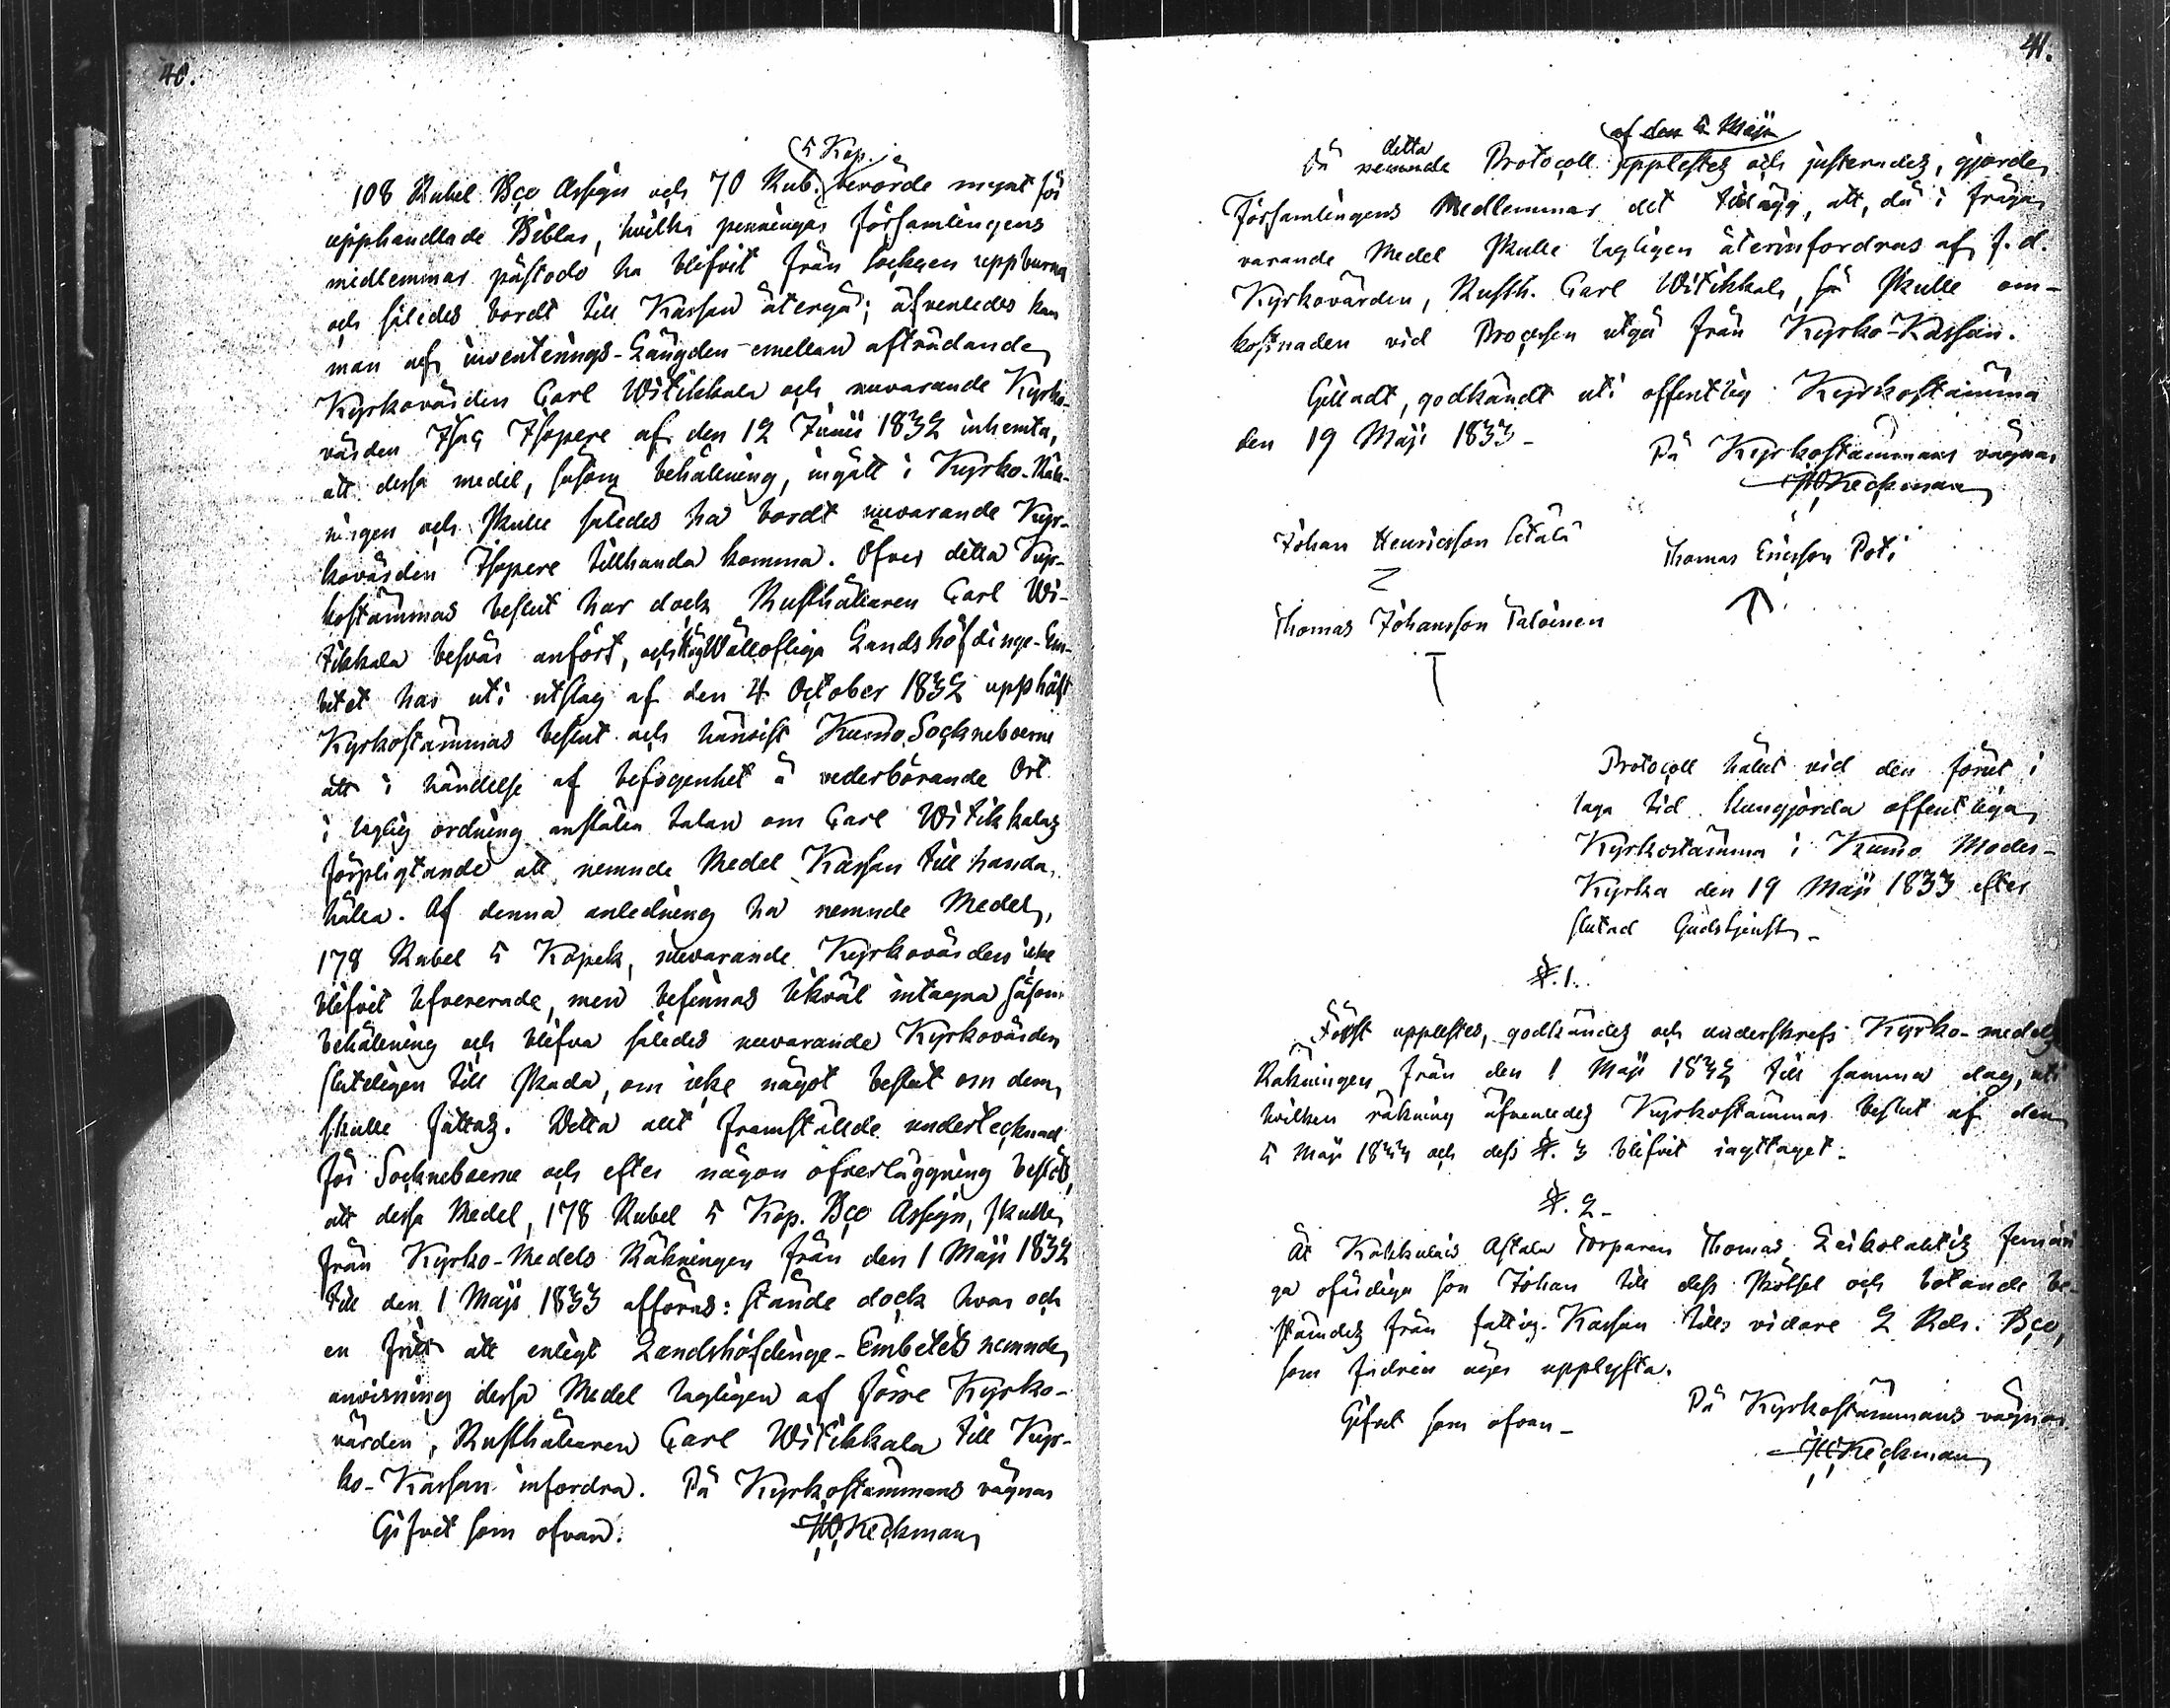 40.
5 Kop.
108 Rubel Bco Assign och 70 Rub. berörde mynt för
upphandlade Biblar, hvilka penningar församlingens
medlemmar påstodo ha blifvit från Socknen uppburna
och således bordt till Kassan återgå; äfvenledes kan
man af inventerings-Längden emellan afträdande
Kyrkovärden Carl Witikkala och nuvarande Kyrko-
värden Isac Isopere af den 12 Junii 1832 inhemta,
att dessa medel, såsom behållning, ingått i Kyrko-Räk-
ningen och skulle således ha bordt nuvarande Kyr-
kovärden Isopere tillhanda komma. Öfver detta Kyr-
kostämmas beslut har dock Rusthållaren Carl Wi-
tikkala besvär anfört, och HögWällofliga Landshöfdinge-Em-
betet har uti utslag af den 4 October 1832 upphäft
Kyrkostämmas beslut och hänvist Kumo Sockneboerne
att i händelse af befogenhet å vederbörande Ort
i laglig ordning anställa talan om Carl Witikkalas
förpligtande att nemnde Medel Kassan till handa-
hålla. Af denna anledning ha nemnde Medel,
178 Rubel 5 Kopek, nuvarande Kyrkovärden icke
blifvit lefvererade, men befinnas likväl intagna såsom
behållning och blifva således nuvarande Kyrkovärden
sluteligen till skada, om icke något beslut om dem
skulle fattas. Detta allt framställde undertecknad
för Socknebuerne och efter någon öfverläggning beslöts,
att dessa Medel, 178 Rubel 5 Kop. Bco Assign, skulle
från Kyrko-Medels Räkningen från den 1 Maji 1832
till den 1 Maji 1833 afföras: stånde dock hvar och
en fritt att enligt Landshöfdinge-Embetets nemnde
anvisning dessa Medel lagligen af förre Kyrko-
värden, Rusthållaren Carl Witikkala till Kyr-
ko-Kassan infordra. På Kyrkostämmans vägnar
Gifvet som ofvan. Keckman
41.
detta af den 5 Maji
Då nemnde Protocoll upplestes och justerades, gjorde
Församlingens Medlemmar det tillägg, att, då i fråga
varande Medel skulle lagligen återinfordras af f.d.
Kyrkovärden, Rusth. Carl Witikkala, så skulle om-
kostnaden vid Processen utgå från Kyrko-Kassan.
Gilladt, godkändt uti offentlig Kyrkostämma
den 19 Maji 1833 -
På Kyrkostämmans vägnar
Keckman
Johan Henricsson
Thomas Ericsson Poti
Thomas Johansson Taloinen
Protocoll hållet vid den förut i
laga tid kungjorda offentliga
Kyrkostämma i Kumo Moder-
Kyrka den 19 Maji 1833 efter
slutad Gudstjenst -
§. 1.
Först upplestes, godkändes och underskrefs Kyrko-medels
Räkningen från den 1 Maji 1832 till samma dag, uti
hvilken räkning äfvenledes Kyrkostämmas beslut af den
5 Maji 1833 och dess §. 3 blifvit iagttaget -
§. 2 -
Åt Astala Torparen Thomas
ga ofärdiga son Johan till dess skötsel och botande be-
stämdes från fattig-Kassan tills vidare 2 Rdr. Bco,
som fadren äger upplyfta.
Gifvet som ofvan -
På Kyrkostämmans vägnar
Keckman